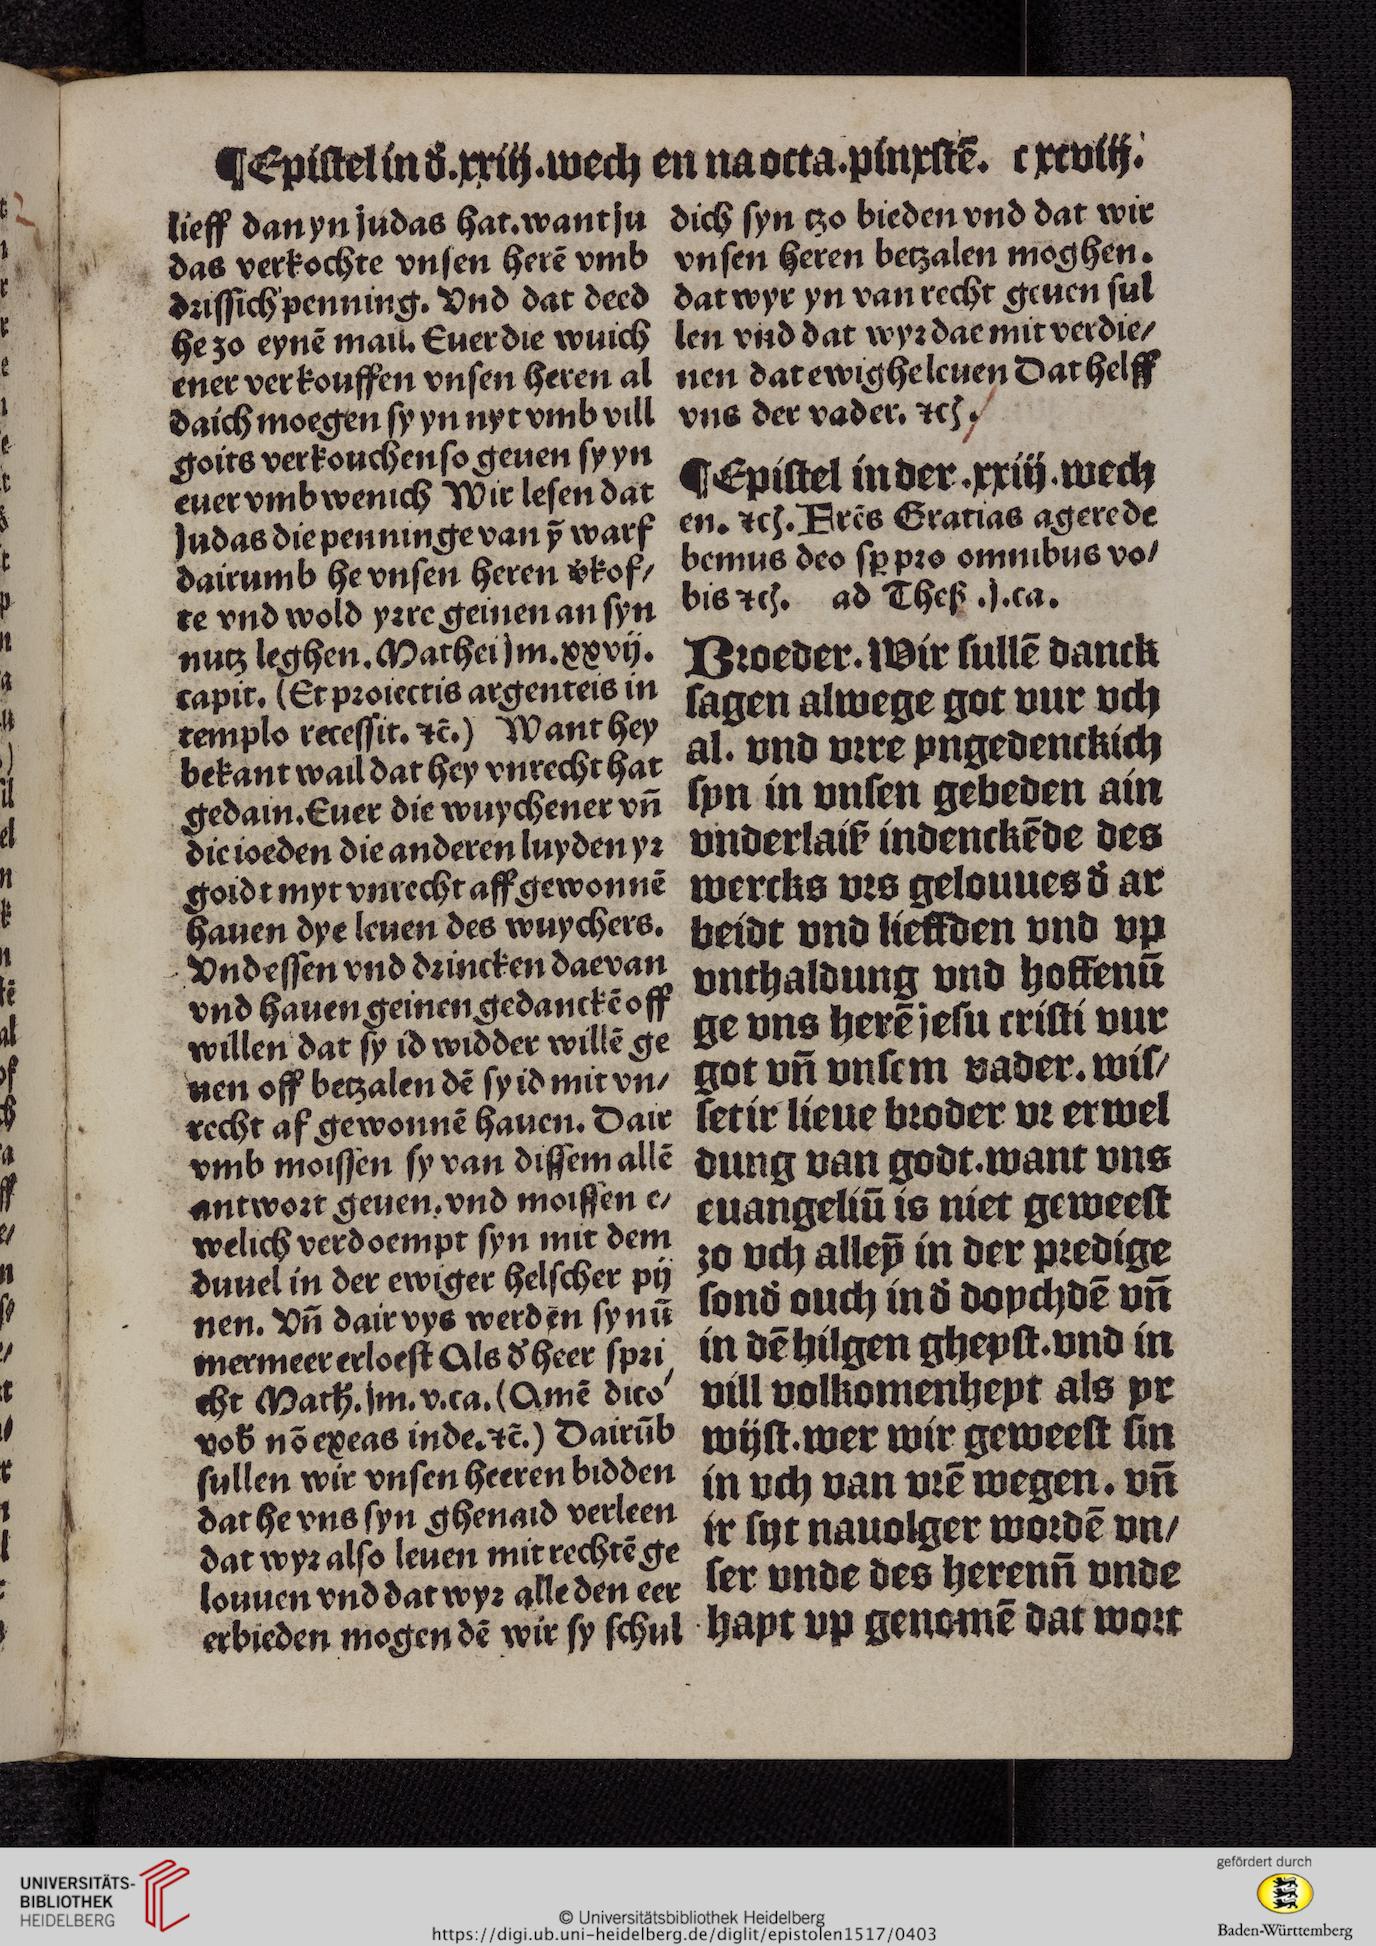 ¶Epistel in d̕.xxiij.wech en na octa.pinxstē. cxcviij.
lieff dan yn judas hat.want ju
das verkochte vnsen herē vmb
drissich penning. Vnd dat deed
he zo eynē mail. Euer die wuich
ener verkouffen vnsen heren al
daich moegen sy yn nyt vmb vill
goits verkouchen so geuen sy yn
euer vmb wenich Wir lesen dat
Judas die penninge van ȳ warf
dairumb he vnsen heren v̕kof/
te vnd wold yrre geinen an syn
nutz leghen. Mathei jm.xxvij.
capit. (Et proiectis argenteis in
templo recessit. ⁊c̄.) Want hey
bekant wail dat hey vnrecht hat
gedain. Euer die wuychener vn̄
die ioeden die anderen luyden yr
goidt myt vnrecht aff gewonnē
hauen dye leuen des wuychers.
Vnd essen vnd drincken daevan
vnd hauen geinen gedanckē off
willen dat sy id widder willē ge
uen off betzalen dē sy id mit vn/
recht af gewonnē hauen. Dair
vmb moissen sy van dissem allē
antwort geuen. vnd moissen e/
welich verdoempt syn mit dem
duuel in der ewiger helscher pij
nen. Vn̄ dair vys werden sy nū
mermeer erloest Als d̕ heer spri
cht Math.jm.v.ca.(Amē dico
vob̄ nō exeas inde.⁊c̄.) Dairūb
sullen wir vnsen heeren bidden
dat he vns syn ghenaid verleen
dat wyr also leuen mit rechtē ge
louuen vnd dat wyr alle den eer
erbieden mogen dē wir sy schul
dich syn tzo bieden vnd dat wir
vnsen heren betzalen moghen.
dat wyr yn van recht geuen sul
len vnd dat wyr dae mit verdie/
nen dat ewighe leuen Dat helff
vns der vader. ⁊cꝫ.
¶Epistel in der.xxiij.wech
en. ⁊cꝫ. Frēs Gratias agere de
bemus deo sꝑ pro omnibus vo/
bis ⁊cꝫ. ad Theß .j.ca.
Broeder. Wir sullē danck
sagen alwege got vur vch
al. vnd vrre yngedenckich
syn in vnsen gebeden ain
vnderlaiß indenckēde des
wercks vrs gelouues d̕ ar
beidt vnd lieffden vnd vp
vnthaldung vnd hoffenū
ge vns herē jesu cristi vur
got vn̄ vnsem vader. wis/
set ir lieue broder vr erwel
dung van godt.want vns
euangeliū is niet geweest
zo vch alleȳ in der predige
sond̕ ouch in d̕ doychdē vn̄
in dē hilgen gheyst.vnd in
vill volkomenheyt als yr
wijst.wer wir geweest sin
in vch van vrē wegen. vn̄
ir sijt nauolger wordē vn/
ser vnde des herenn̄ vnde
hayt vp genomē dat wort
UNIVERSITÄTS-
BIBLIOTHEK
HEIDELBERG
© Universitätsbibliothek Heidelberg
https://digi.ub.uni-heidelberg.de/diglit/epistolen1517/0403
gefördert durch
Baden-Württemberg